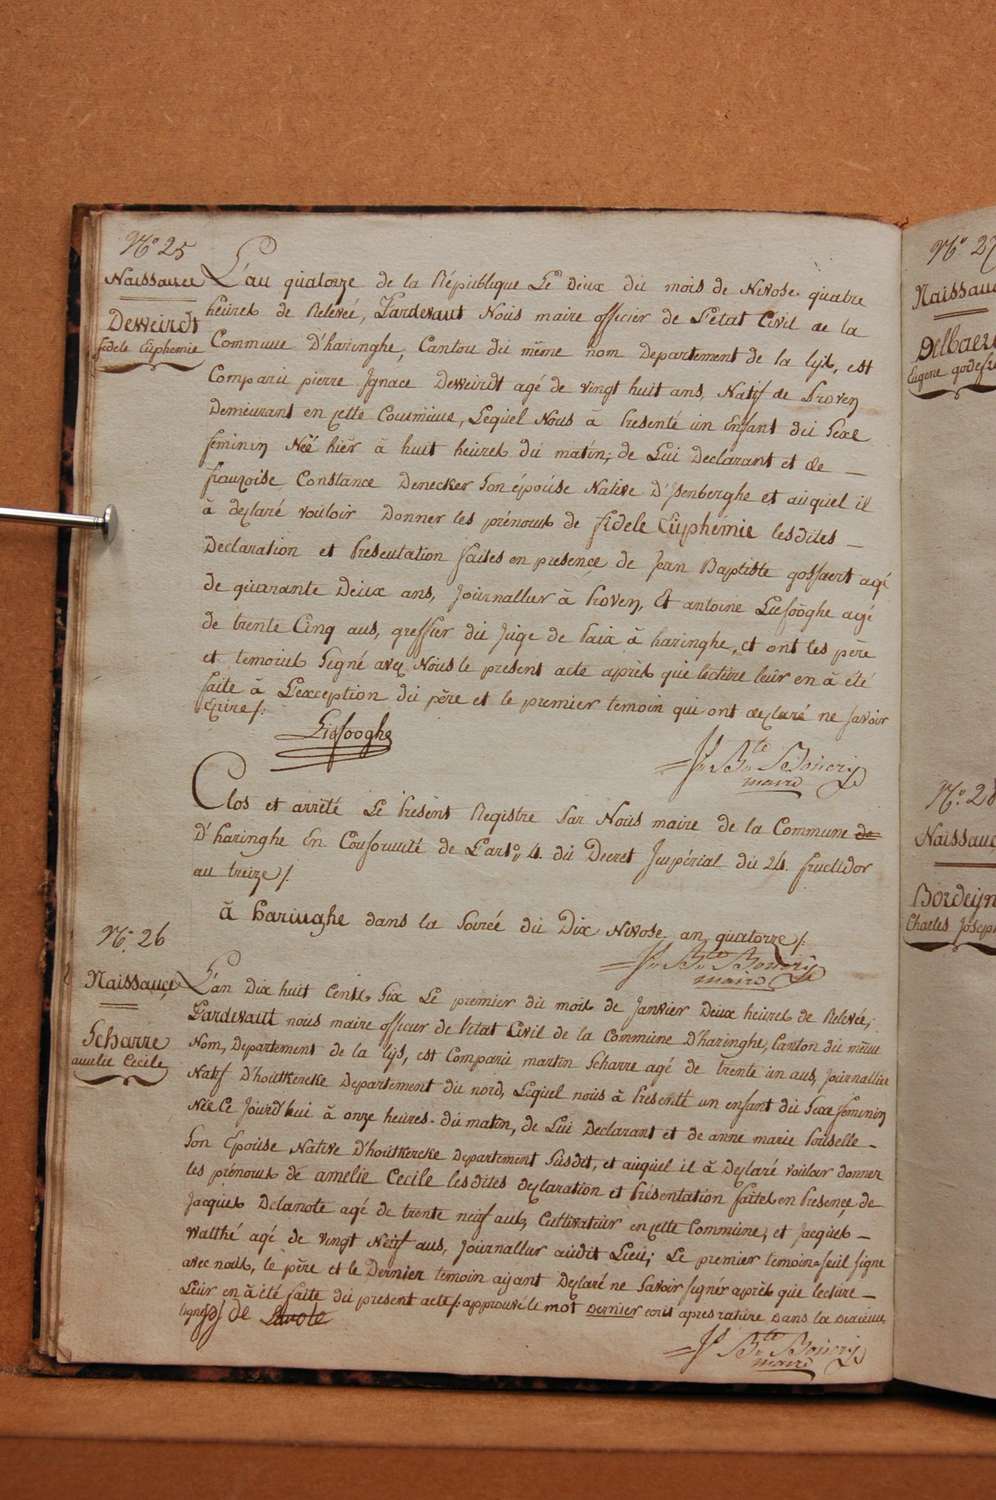 N.º 25
Naissance
Deweirdt
fidele Euphemie
L'an quatorze de la République Le Deux du mois de Nivose quatre
heures de Relevée, Pardevant Nous maire officier de L'etat Civil de la
Commune D'haringhe, Canton du même nom Departement de la lys, est
Comparu pierre Ignace Deweirdt agé de vingt huit ans, Natif de Proven
Demeurant en cette Commune, Lequel Nous à Presenté un Enfant du Sexe
feminin Née hier à huit heures du matin, de Lui Declarant et de —
françoise Constance Denecker son épouse Native D'Isenberghe et auquel il
à declaré vouloir Donner les prénoms de fidele Euphemie lesdites —
Declaration et Presentation faites en presence de Jean Baptiste gossaert agé
de quarante Deux ans, Journallier à Proven, Et antoine Liefooghe agé
de trente Cinq ans, greffier du Juge de Paix à haringhe, et ont les père
et temoins Segné avec Nous le present acte après que lecture leur en à été
faite à L'exception du père et le premier temoin qui ont declaré ne savoir
Ecrire /.
Liefooghe
J. B.te Bouery
maire
Clos et arrêté Le Present Registre Par Nous maire de la Commune de
D'haringhe En Conformité de L'art.º 4. du Decret Impérial du 24. fructidor
an treize /.
à haringhe dans la Soirée du Dix Nivose an quatorze /.
J. B.te Bouery
maire
N.º 26
Naissance
Scharre
amelie Cecile
L'an Dix huit Cents Six Le premier du mois de Janvier Deux heures de Relevée,
Pardevant nous maire officier de l'etat Civil de la Commune D'haringhe, Canton du même
Nom, Departement de la lys, est Comparu martin Scharre agé de trente un ans, Journallier
Natif D'houtkercke Departement du nord, Lequel nous à Presenté un enfant du Sexe feminin
Née Ce Jourd'hui à onze heures du matin, de Lui Declarant et de anne marie Pouselle —
Son Epouse Native D'houtkercke Departement Susdit, et auquel il à Declaré vouloir donner
les prénoms de amelie Cecile lesdites declaration et Présentation faites en Presence de
Jacques Delanote agé de trente neuf ans, Cultivateur en cette Commune, et Jacques —
Walthé agé de vingt Neuf ans, Journallier audit Lieu; Le premier temoin seul signe
avec nous, le père et le Dernier temoin aijant Declaré ne Savoir signér après que lecture —
Leur en à été faite du present acte /: approuvé le mot dernier ecrit apres rature dans la deuxieme
ligne
J. B.te Bouery
maire
N.º 27
Naissanc
Delbaere
Eugene godefr
N.º 28
Naissanc
Bordeyn
Charles Joseph